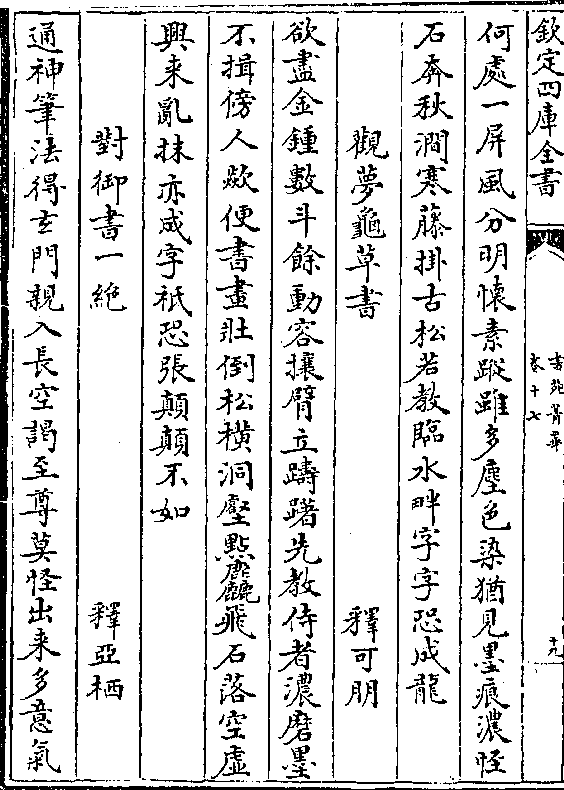 欽定四庫全書
書苑菁華
卷十七
十九
何處一屏風分明懷素蹤雖多塵色染猶見墨痕濃怪
石奔秋澗寒藤掛古松若教臨水畔字字恐成龍
觀夢龜草書 釋可朋
欲盡金鍾數斗餘動容攘臂立躊躇先教侍者濃磨墨
不揖傍人歘便書畫壯倒松橫洞壑點麤飛石落空虛
興来亂抹亦成字秖恐張顛顛不如
對御書一絶 釋亞栖
通神筆法得玄門親入長空謁至尊莫怪出来多意氣